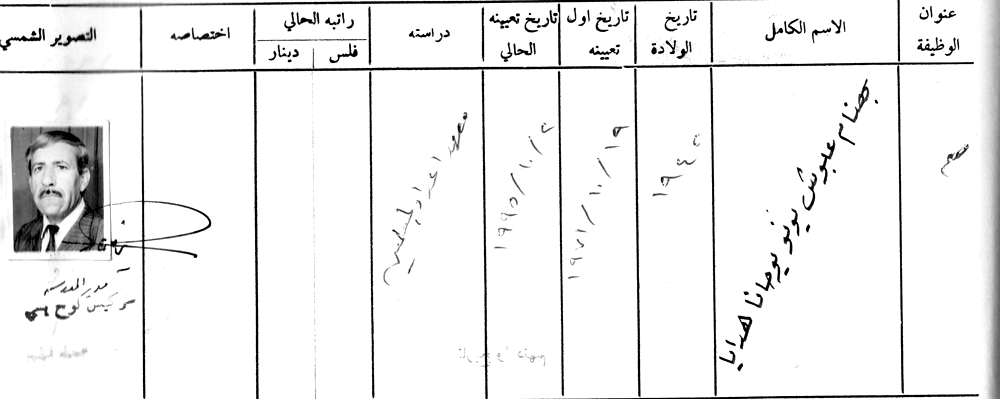 عنوان الوظيفة
الاسم الكامل
تاريخ الولادة
تاريخ اول تعيينه
تاريخ تعيينه الحالي
دراسته
راتبه الحالي
فلس
دينار
اختصاصه
التصوير الشمسي
معلم
بهنام عبوش يونو يوحانا هدايا
١٩٤٠
١٩٧١/١٠/١٩
١٩٩٥/١٠/٢
معهد اعداد المعلمين
مدير المدرسة